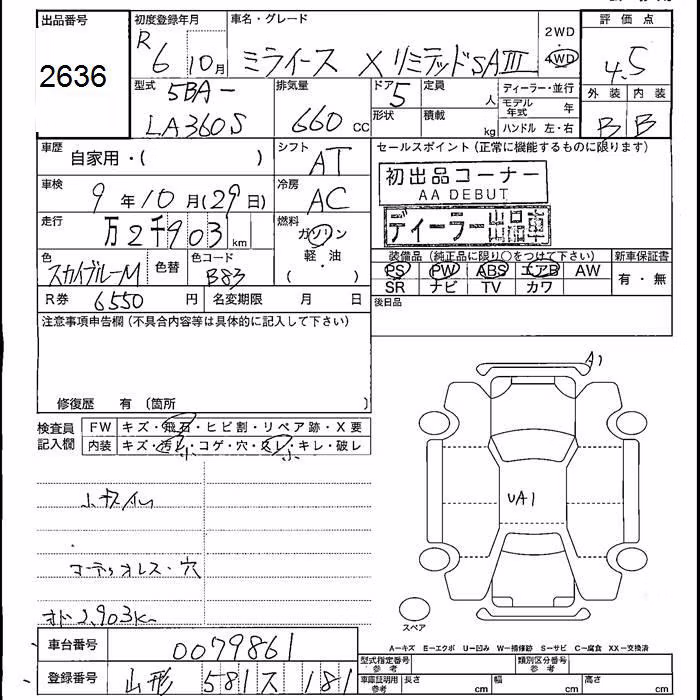 出品番号
2636
初度登録年月
R 6 10月
車名・グレード
ミライース X リミテッドSAⅢ
2WD
4WD
評価点
4.5
外装 内装
B B
型式
5BA-
LA360S
排気量
660 cc
ドア
5
定員
人
形状
積載
kg
ディーラー・並行
モデル年式 年
ハンドル 左・右
車歴
自家用・( )
シフト
AT
車検
9年10月(29日)
冷房
AC
走行
万2千903km
燃料
ガソリン
軽・油
( )
色
スカイブルーM
色替
色コード
B83
R券 6550円
名変期限 月 日
セールスポイント (正常に機能するものに限ります)
初出品コーナー
AA DEBUT
ディーラー出品車
装備品 (純正品に限り○をつけて下さい)
新車保証書
PS PW ABS エアB AW
SR ナビ TV カワ
有・無
後日品
注意事項申告欄 (不具合内容等は具体的に記入して下さい)
修復歴 有 〔箇所 〕
検査員記入欄
FW キズ・飛石・ヒビ割・リペア跡・X要
内装 キズ・汚レ・コゲ・穴・スレ・キレ・破レ
小 小
A1
UA1
スペア
コーティング オレス・穴
オド2,903K
車台番号
0079861
登録番号
山形 581 ス 181
A―キズ E―エクボ U―凹み W―補修跡 S―サビ C―腐食 XX―交換済
型式指定番号 参考
類別区分番号 参考
車庫証明用 参考
長さ cm
幅 cm
高さ cm